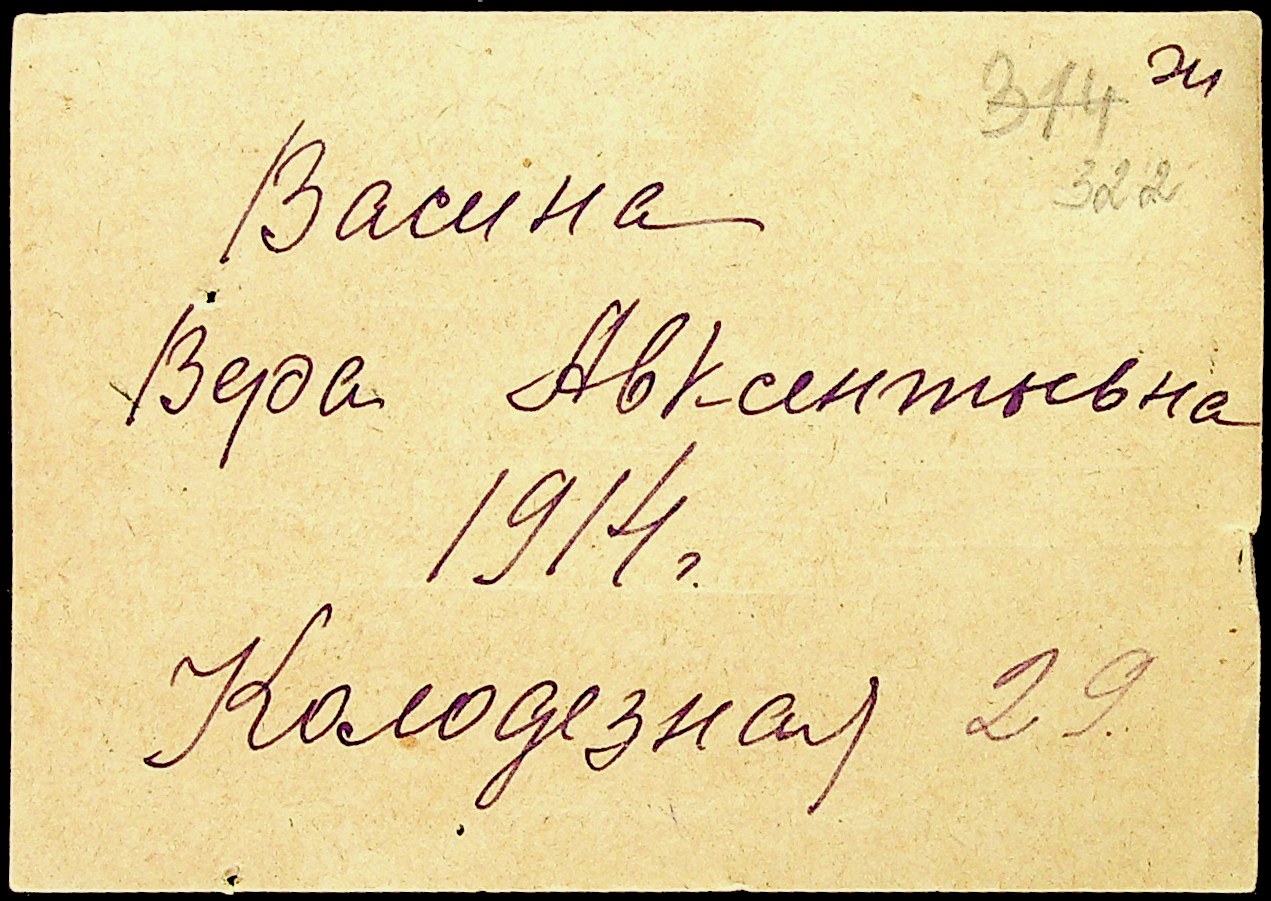 314
322
Васина
Вера Авксентьевна
1914 г.
Колодезная 29.